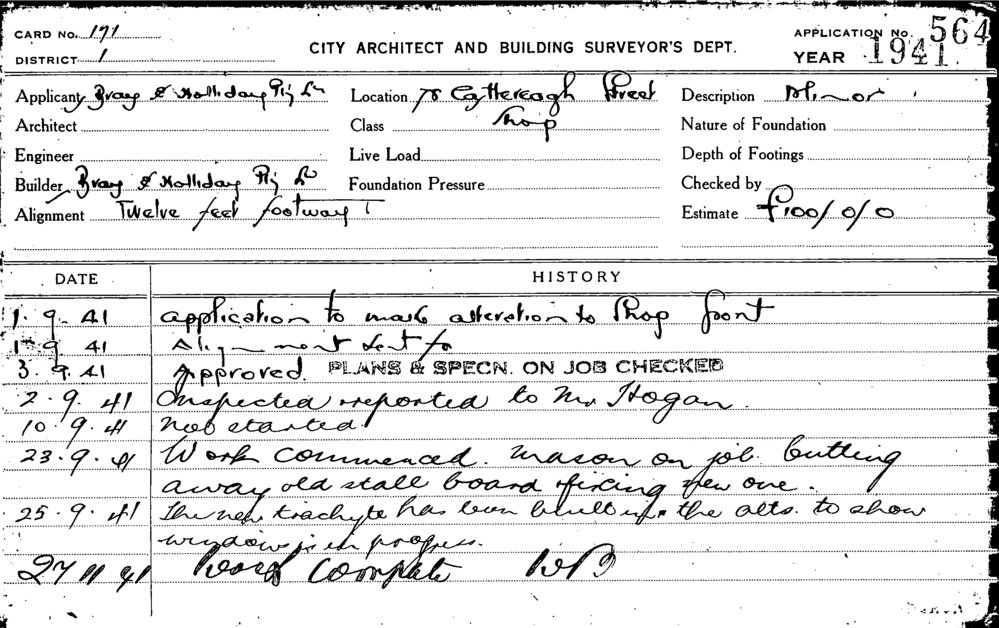 CARD NO. 171
DISTRICT 1
CITY ARCHITECT AND BUILDING SURVEYOR'S DEPT.
APPLICATION NO. 564
YEAR 1941
Applicant Bray & Holliday Pty Ld Location 78 Castlereagh Street Description Minor
Architect Class Shop Nature of Foundation
Engineer Live Load Depth of Footings
Builder Bray & Holliday Pty Ld Foundation Pressure Checked by
Alignment Twelve feet footway Estimate £100/0/0
DATE HISTORY
1. 9. 41 application to make alteration to Shop front
1. 9 41 Alignment sent for
3. 9. 41 Approved. PLANS & SPECN. ON JOB CHECKED
2. 9. 41 Inspected & reported to Mr Hogan.
10. 9. 41 not started.
23. 9. 41 Work commenced. mason on job cutting
away old stall board & fixing new one.
25. 9. 41 The new trachyte has been built in & the alts. to show
windows is in progress.
27 11 41 Work Complete